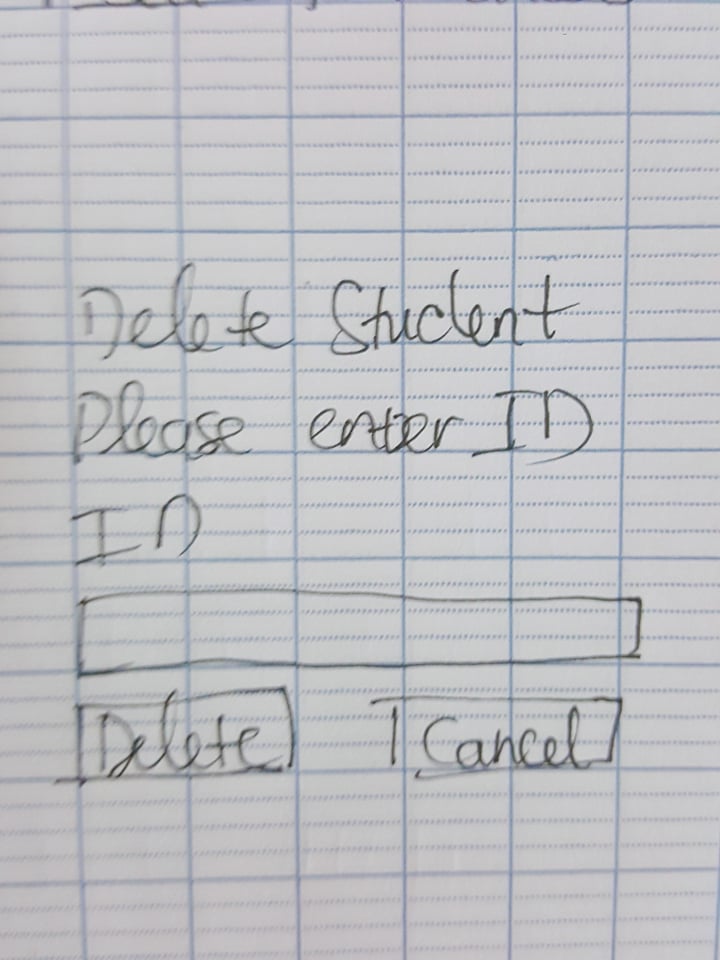 Delete Student
Please enter ID
ID
Delete Cancel